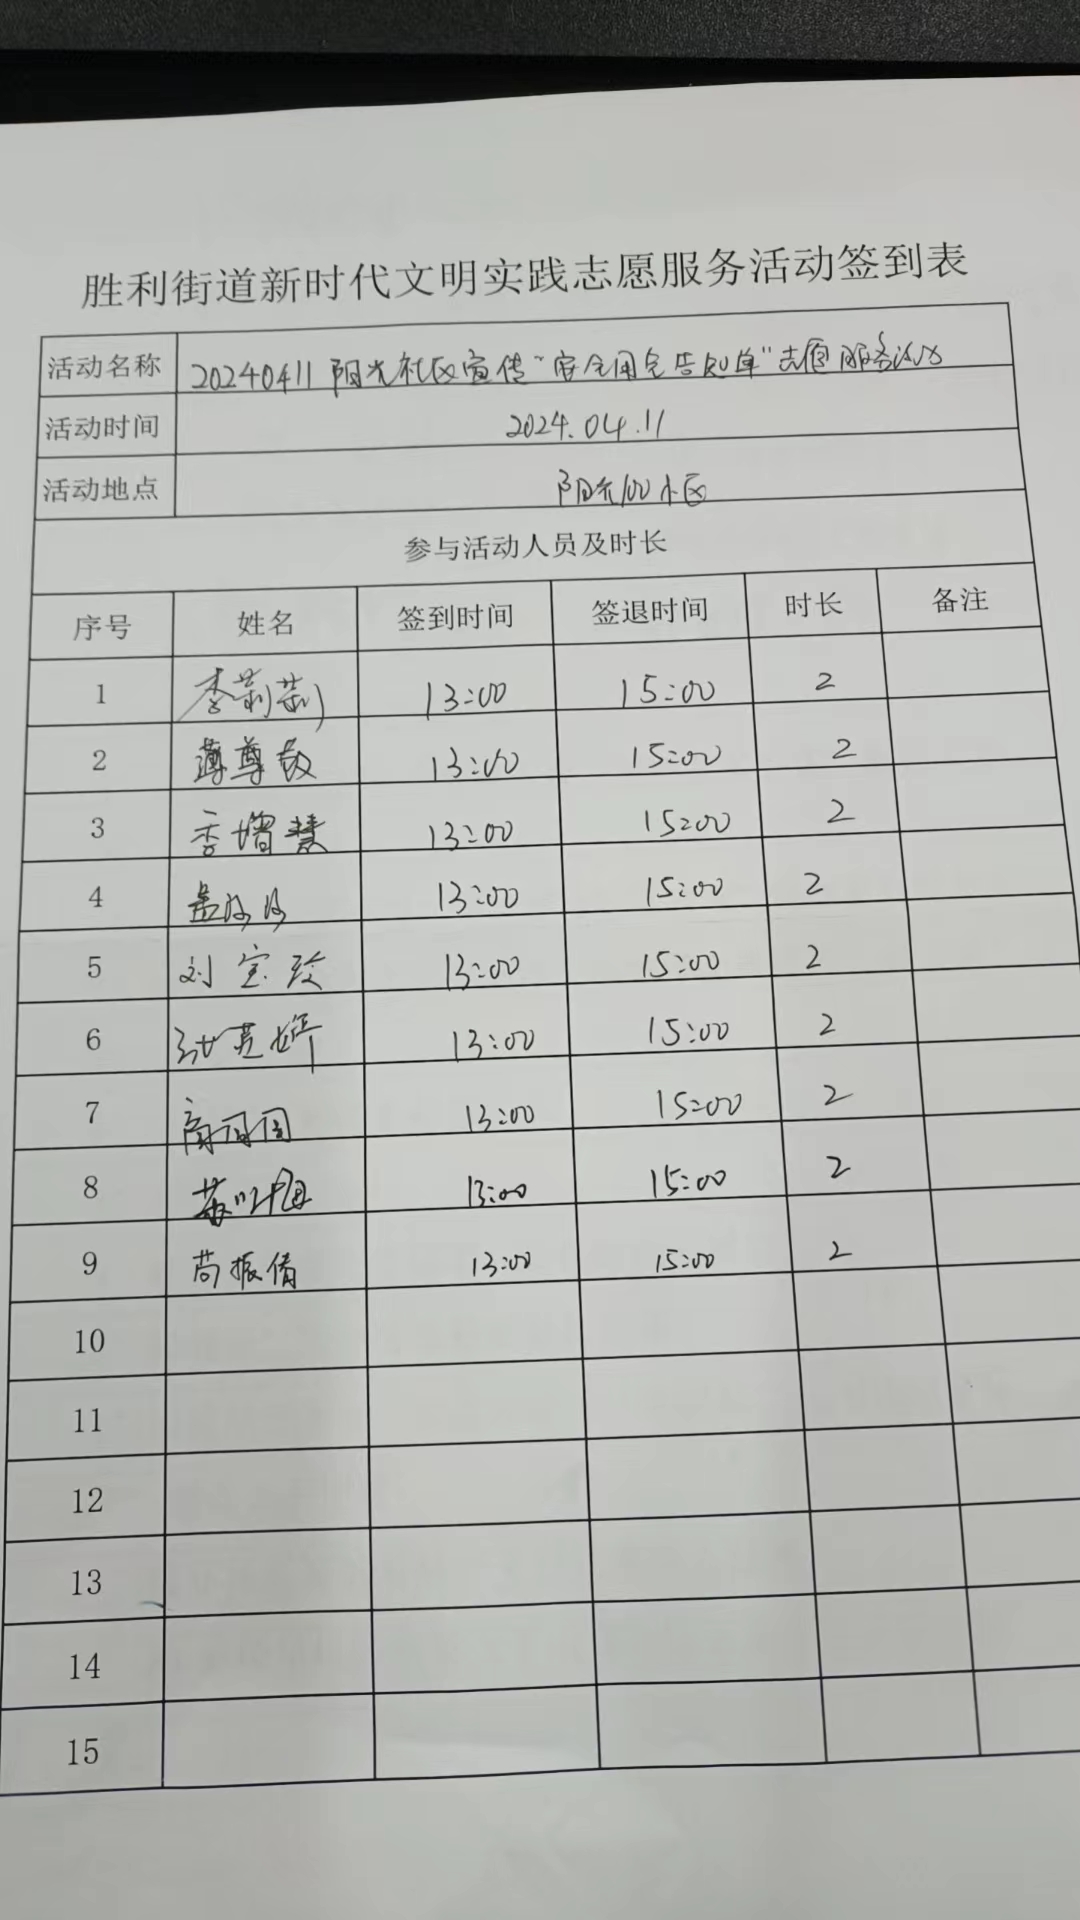 胜利街道新时代文明实践志愿服务活动签到表
活动名称 20240411阳光社区宣传"安全用电告知单"志愿服务活动
活动时间 2024.04.11
活动地点 阳光100小区
参与活动人员及时长
序号 姓名 签到时间 签退时间 时长 备注
1 李莉莉 13:00 15:00 2
2 薄尊敬 13:00 15:00 2
3 李增慧 13:00 15:00 2
4 13:00 15:00 2
5 刘宝玲 13:00 15:00 2
6 13:00 15:00 2
7 13:00 15:00 2
8 13:00 15:00 2
9 尚振倩 13:00 15:00 2
10
11
12
13
14
15